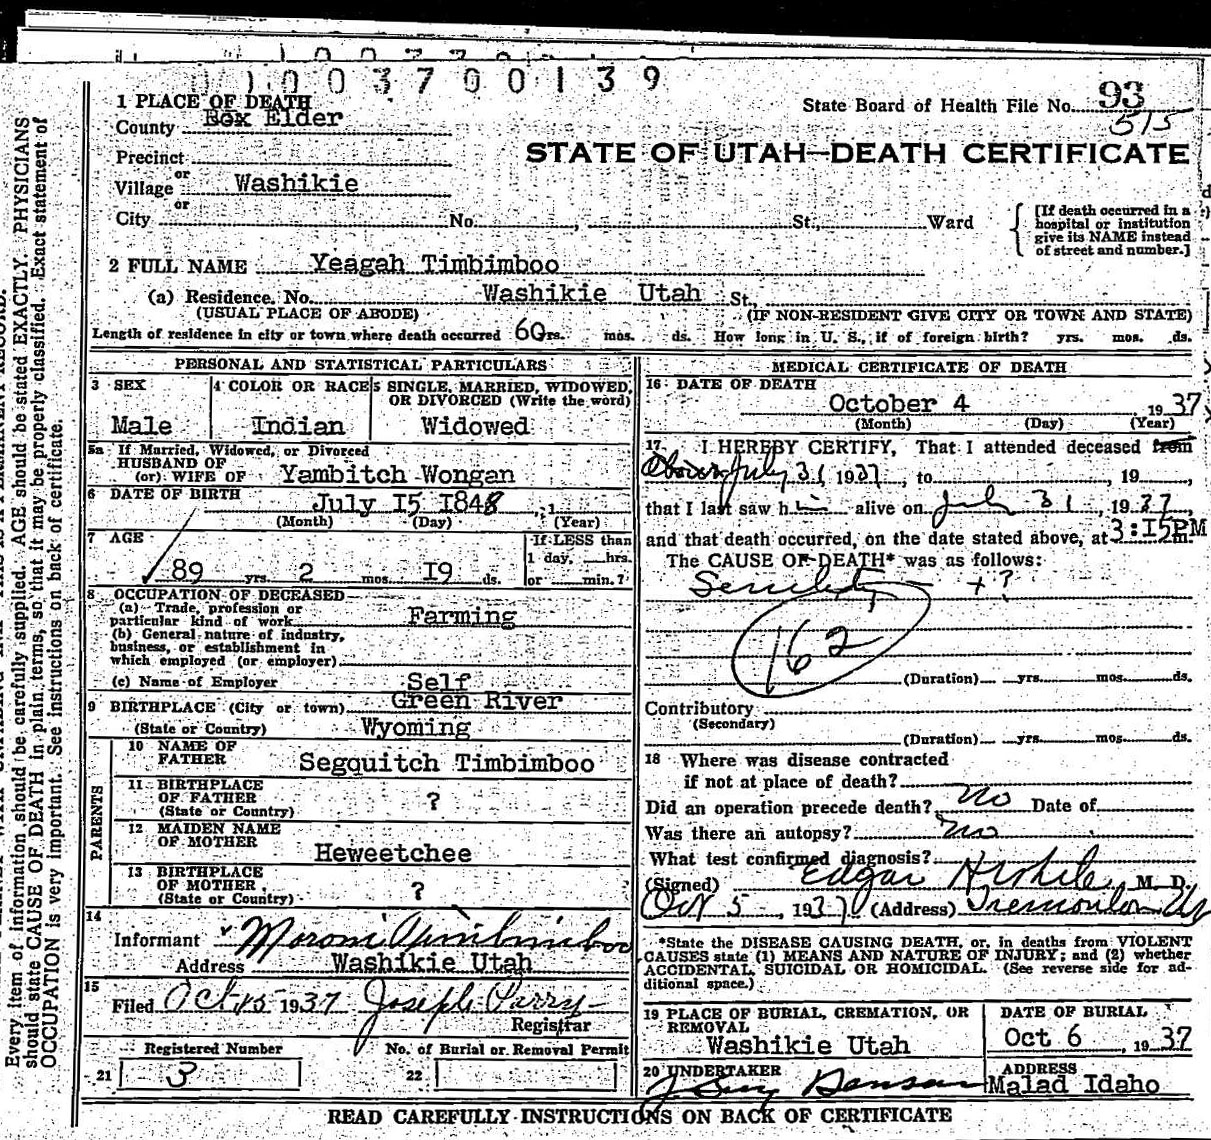 1003700139
State Board of Health File No. 93
515
1 PLACE OF DEATH
County Box Elder
STATE OF UTAH—DEATH CERTIFICATE
Precinct
or
Village Washikie
or
City No. , St., Ward
[If death occurred in a
hospital or institution
give its NAME instead
of street and number.]
2 FULL NAME Yeagah Timbimboo
(a) Residence. No. Washikie Utah St.,
(USUAL PLACE OF ABODE) (IF NON-RESIDENT GIVE CITY OR TOWN AND STATE)
Length of residence in city or town where death occurred 60 yrs. mos. ds. How long in U. S., if of foreign birth? yrs. mos. ds.
PERSONAL AND STATISTICAL PARTICULARS
3 SEX
Male
4 COLOR OR RACE
Indian
5 SINGLE, MARRIED, WIDOWED,
OR DIVORCED (Write the word)
Widowed
5a If Married, Widowed, or Divorced
HUSBAND OF
(or) WIFE OF Yambitch Wongan
6 DATE OF BIRTH July 15 1848
(Month) (Day) (Year)
7 AGE
89 yrs. 2 mos. 19 ds.
If LESS than
1 day, hrs.
or min.?
8 OCCUPATION OF DECEASED
(a) Trade, profession or
particular kind of work Farming
(b) General nature of industry,
business, or establishment in
which employed (or employer)
(c) Name of Employer Self
9 BIRTHPLACE (City or town) Green River
(State or Country) Wyoming
PARENTS
10 NAME OF
FATHER Segquitch Timbimboo
11 BIRTHPLACE
OF FATHER ?
(State or Country)
12 MAIDEN NAME
OF MOTHER
Heweetchee
13 BIRTHPLACE
OF MOTHER ?
(State or Country)
14
Informant Moroni Timbimboo
Address Washikie Utah
15
Filed Oct 15 1937 Joseph Parry
Registrar
Registered Number
21 3
No. of Burial or Removal Permit
22
MEDICAL CERTIFICATE OF DEATH
16 DATE OF DEATH
October 4 1937
(Month) (Day) (Year)
17 I HEREBY CERTIFY, That I attended deceased from
July 31 1937, to , 19
that I last saw him alive on July 31, 1937,
and that death occurred, on the date stated above, at 3:15PM
The CAUSE OF DEATH* was as follows:
Senility + ?
162
(Duration) yrs. mos. ds.
Contributory
(Secondary)
(Duration) yrs. mos. ds.
18 Where was disease contracted
if not at place of death?
Did an operation precede death? no Date of
Was there an autopsy? no
What test confirmed diagnosis?
(Signed) Edgar H White, M. D.
Oct 5, 1937 (Address) Tremonton Ut
*State the DISEASE CAUSING DEATH, or, in deaths from VIOLENT
CAUSES state (1) MEANS AND NATURE OF INJURY; and (2) whether
ACCIDENTAL, SUICIDAL OR HOMICIDAL. (See reverse side for ad-
ditional space.)
19 PLACE OF BURIAL, CREMATION, OR
REMOVAL
Washikie Utah
DATE OF BURIAL
Oct 6, 1937
20 UNDERTAKER
ADDRESS
Malad Idaho
READ CAREFULLY INSTRUCTIONS ON BACK OF CERTIFICATE
Every item of information should be carefully supplied. AGE should be stated EXACTLY. PHYSICIANS
should state CAUSE OF DEATH in plain terms, so that it may be properly classified. Exact statement of
OCCUPATION is very important. See instructions on back of certificate.